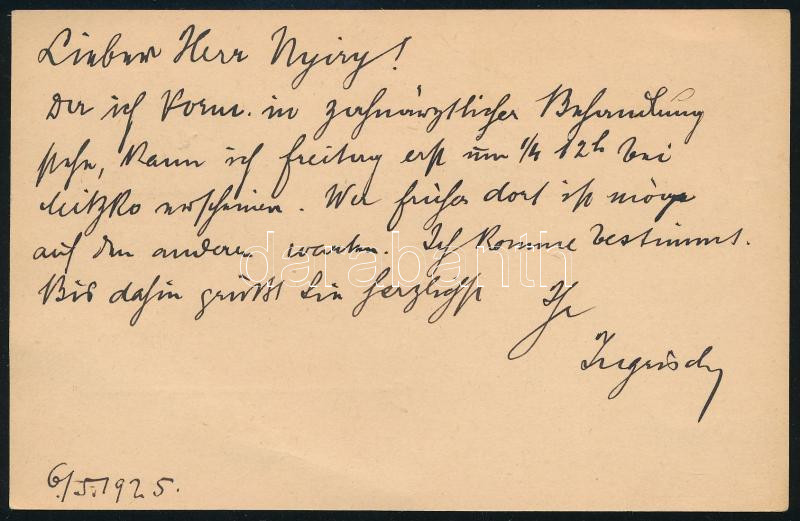 Lieber Herr Nyiry!
Da ich Vorm. in zahnärztlicher Behandlung
stehe, kann ich freitag erst um 1/4 12h bei
Mitzko erscheinen. Wer früher dort ist möge
auf den andern warten. Ich komme bestimmt.
darabanth
Bis dahin grüßt Sie herzlichst Ihr
Ingrisch
6/5.1925.